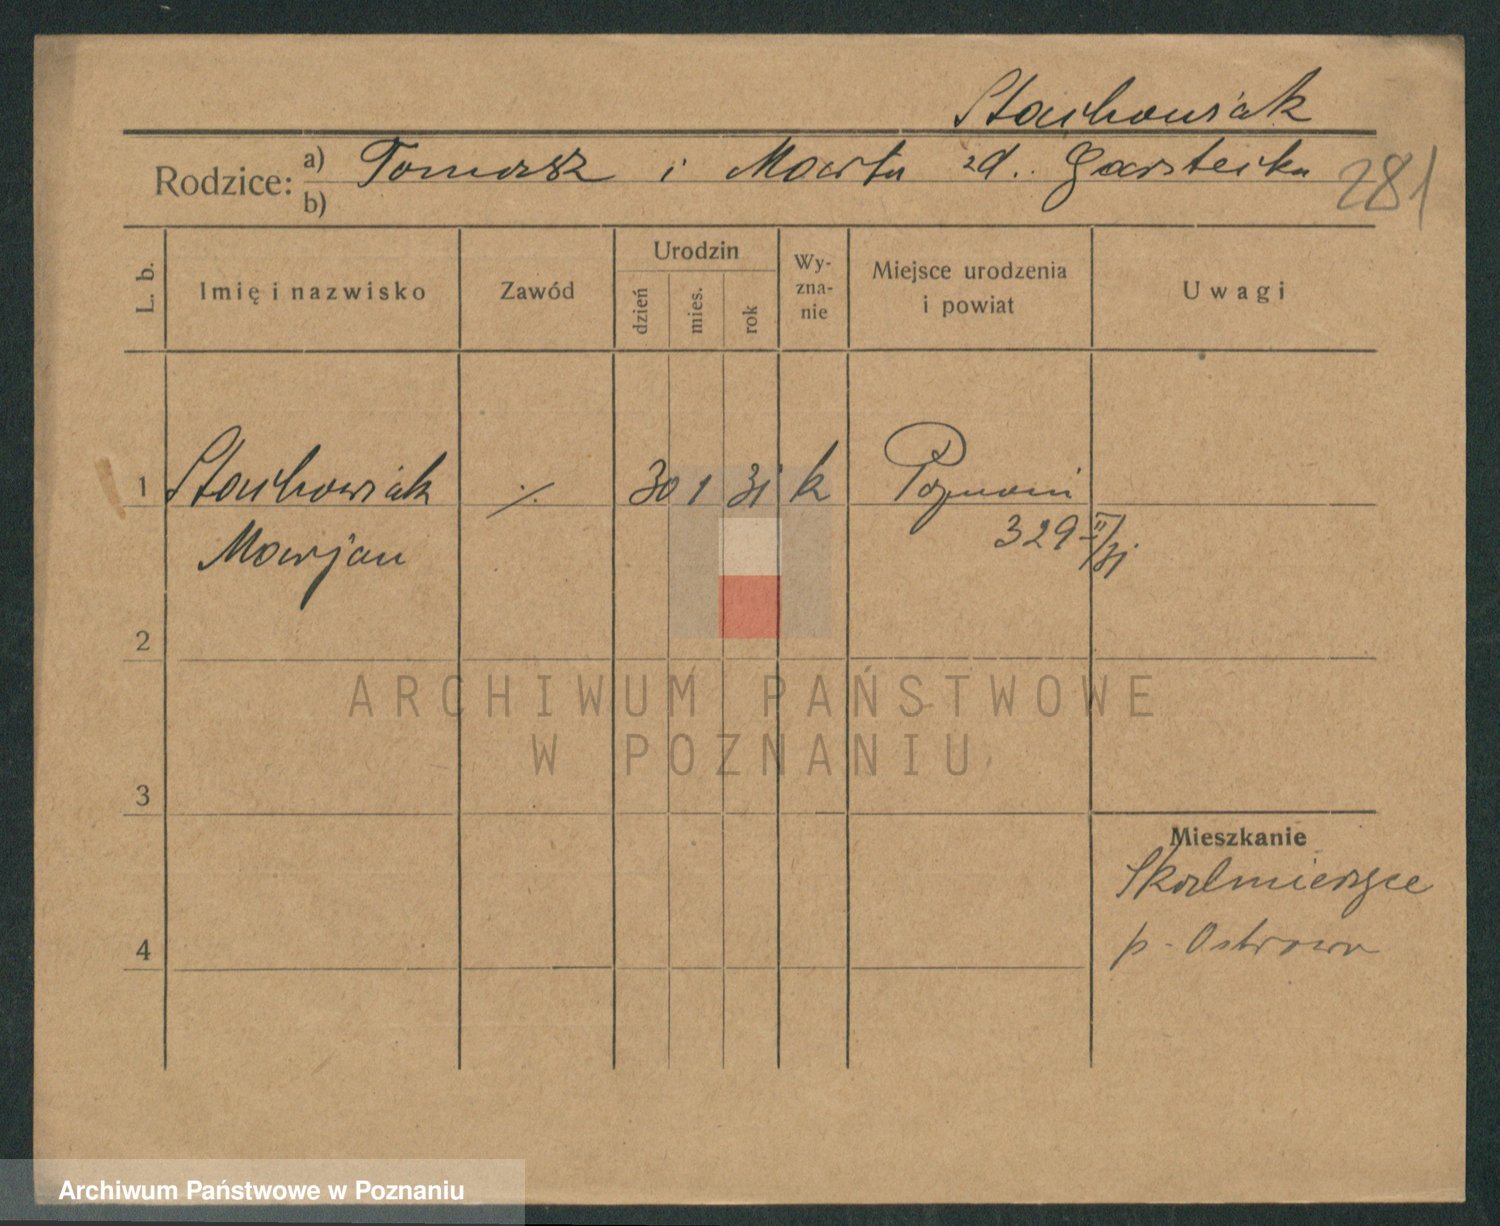 Stachowiak
Rodzice: a) Tomasz i Marta zd. Garstecka 281
b)
L. b. Imię i nazwisko Zawód Urodzin dzień mies. rok Wy-znanie Miejsce urodzenia i powiat Uwagi
1 Stachowiak ./. 30 1 31 k Poznań
Marjan 329 II/31
2
ARCHIWUM PAŃSTWOWE
W POZNANIU
3
Mieszkanie
Skalmierzyce
4 p. Ostrowo
Archiwum Państwowe w Poznaniu